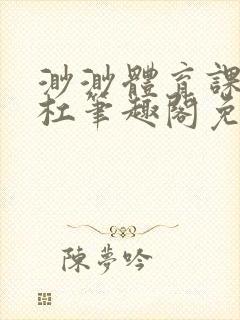 渺渺體育課
杜筆趣閣免
陳夢吟